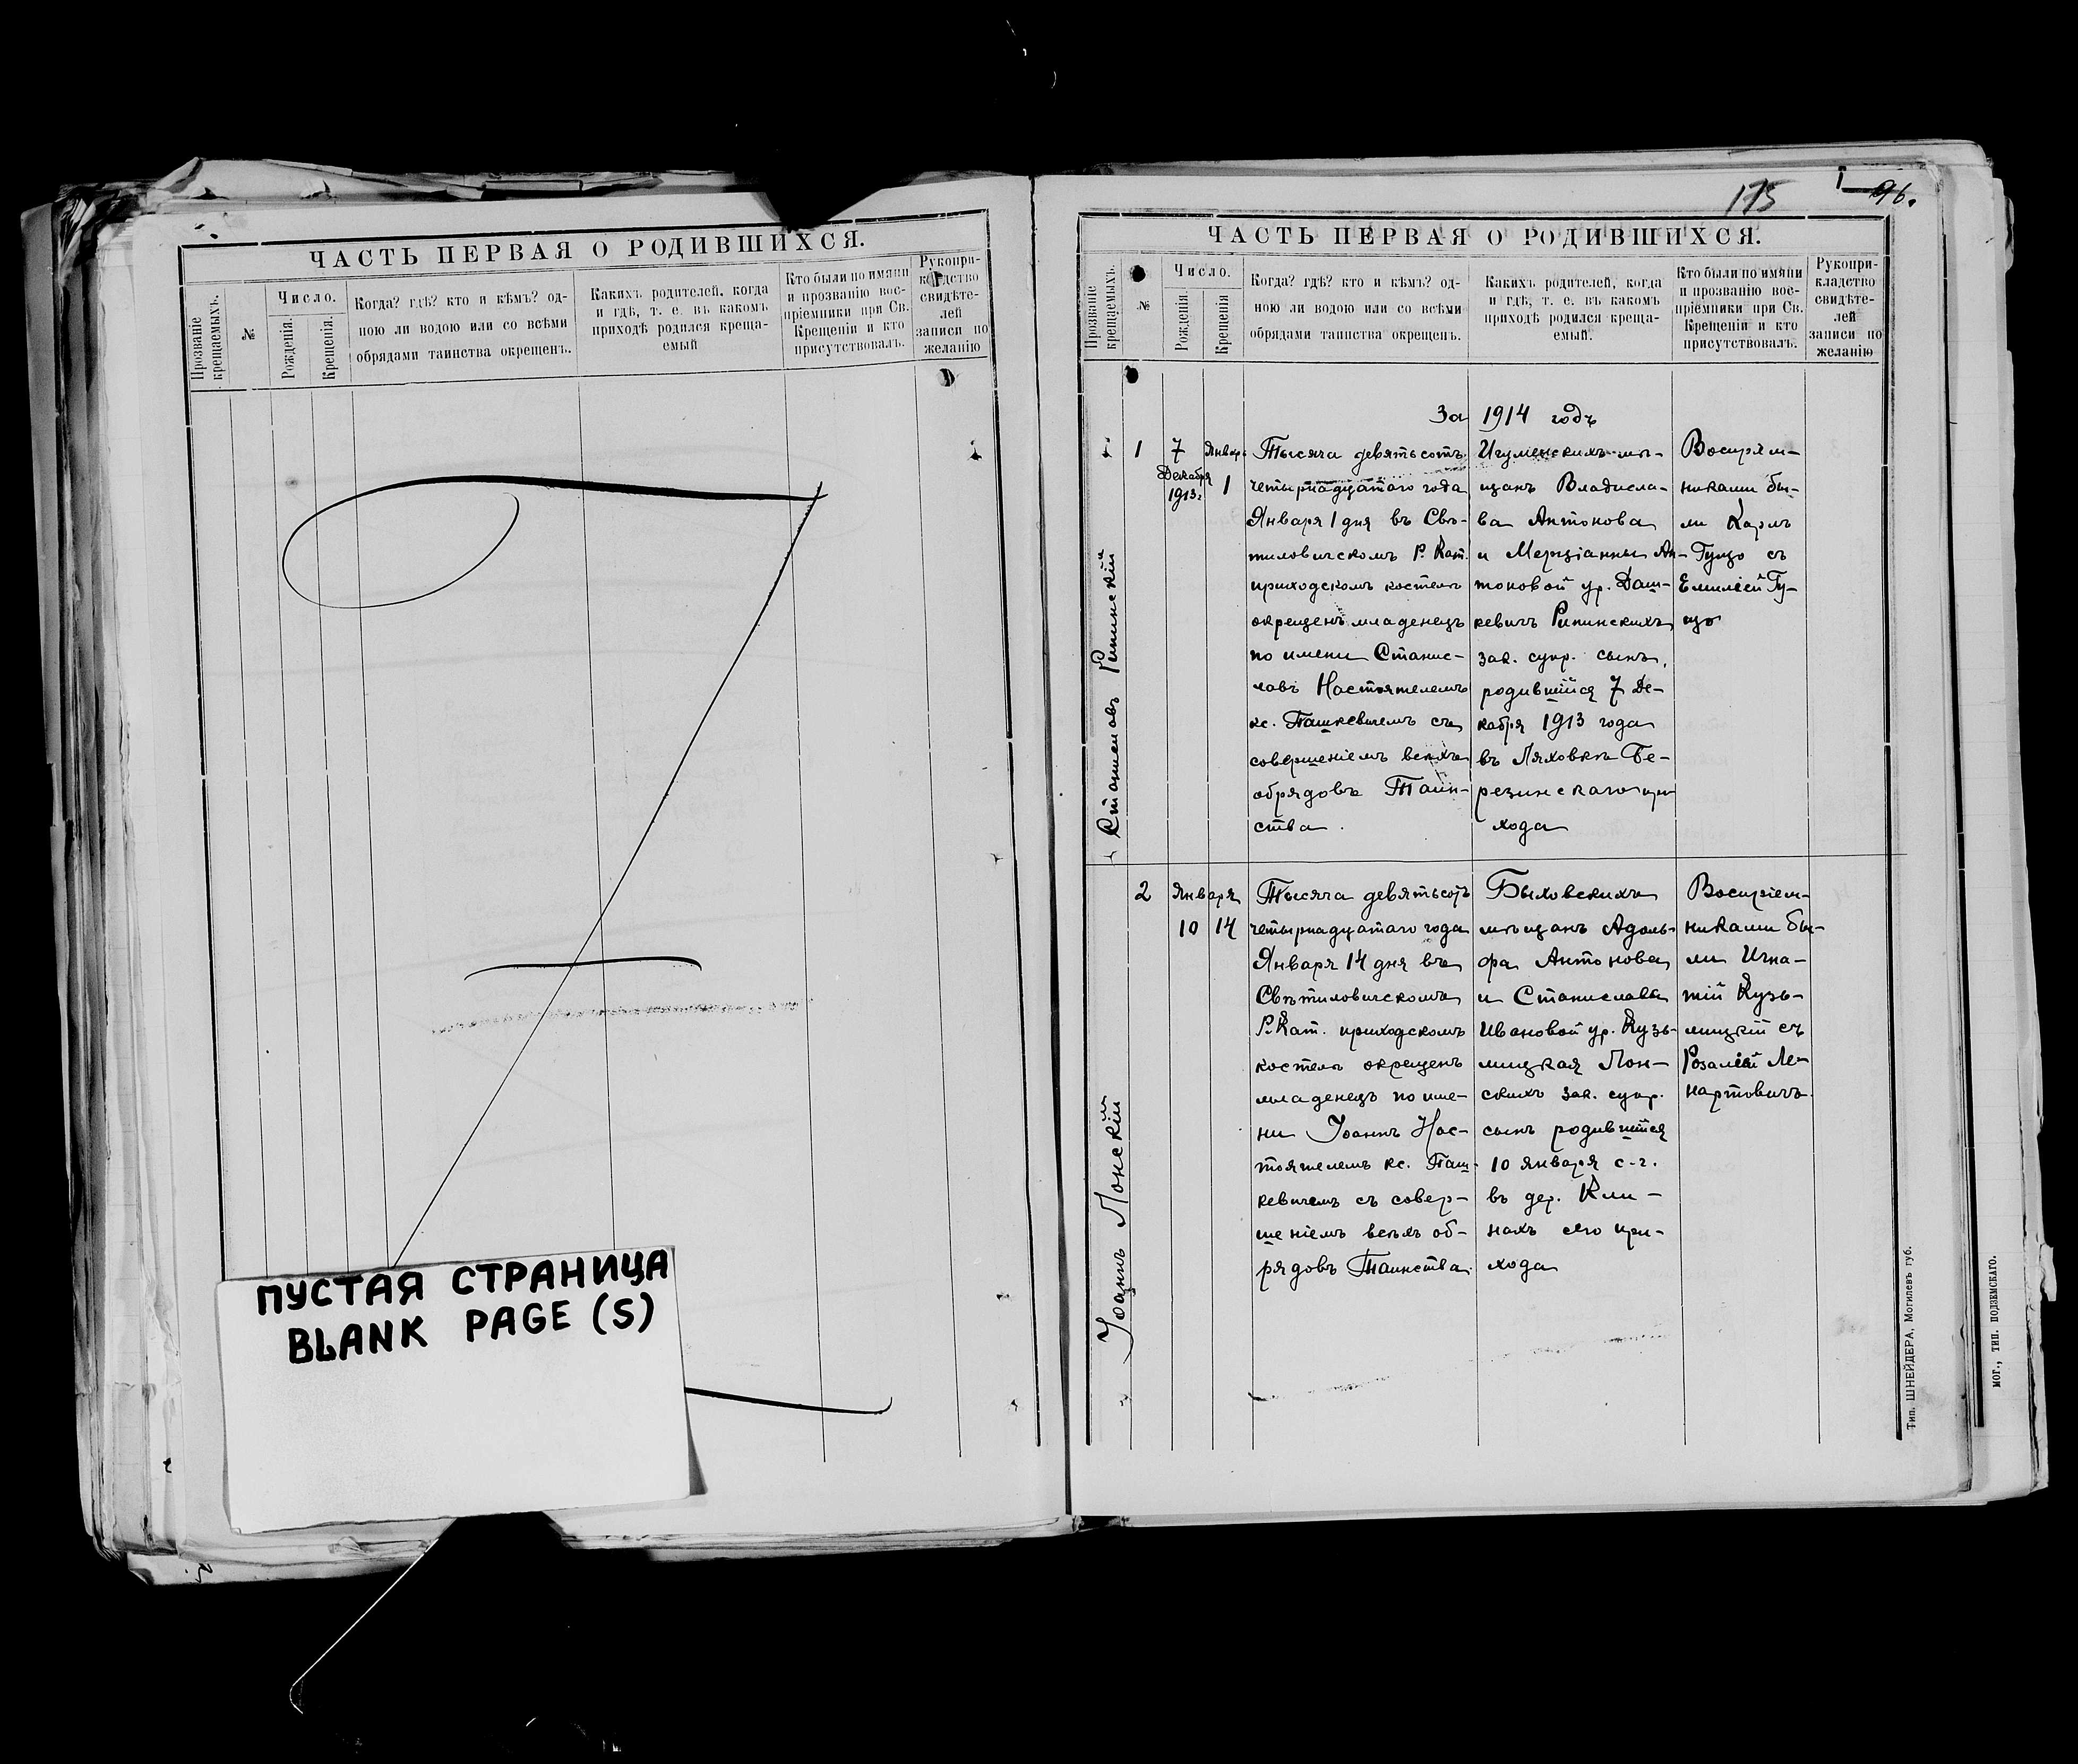 ЧАСТЬ ПЕРВАЯ О РОДИВШИХСЯ.
Прозваніе крещаемыхъ.
№
Число.
Рожденія.
Крещенія.
Когда? гдѣ? кто и кѣмъ? од-
ною ли водою или со всѣми
обрядами таинства окрещенъ.
Какихъ родителей, когда
и гдѣ, т. е. въ какомъ
приходѣ родился креща-
емый
Кто были по имяни
и прозванію вос-
пріемники при Св.
Крещеніи и кто
присутствовалъ.
Рукопри-
кладство
свидѣте-
лей
записи по
желанію
ПУСТАЯ СТРАНИЦА
BLANK PAGE (S)
175
96.
ЧАСТЬ ПЕРВАЯ О РОДИВШИХСЯ.
Прозваніе крещаемыхъ.
№
Число.
Рожденія.
Крещенія
Когда? гдѣ? кто и кѣмъ? од-
ною ли водою или со всѣми
обрядами таинства окрещенъ.
Какихъ родителей, когда
и гдѣ, т. е. въ какомъ
приходѣ родился креща-
емый.
Кто были по имяни
и прозванію вос-
пріемники при Св.
Крещеніи и кто
присутствовалъ.
Рукопри-
кладство
свидѣте-
лей
записи по
желанію
За 1914 годъ
Станиславъ Рипинскій
1
7
Декабря
1913г
Январь
1
Тысяча девятьсотъ
четырнадцатаго года
Января 1 дня въ Свѣ-
тиловичскомъ Р. Кат.
приходскомъ костелѣ
окрещенъ младенецъ
по имени Станис-
лавъ Настоятелемъ
кс. Пашкевичемъ съ
совершеніемъ всѣхъ
обрядовъ Таин-
ства.
Игуменскихъ мѣ-
щанъ Владисла-
ва Антонова
и Мерціанны Ан-
тоновой ур. Даш-
кевичъ Рипинскихъ
зак. супр. сынъ,
родившійся 7 Де-
кабря 1913 года
въ Ляховкѣ Бе-
резинскаго при-
хода
Воспріем-
никами бы-
ли Карлъ
Гуцо съ
Емиліей Гу-
цо
Іоаннъ Лонскій
2
Января
10 14
Тысяча девятьсотъ
четырнадцатаго года
Января 14 дня въ
Свѣтиловичскомъ
Р. Кат. приходскомъ
костелѣ окрещенъ
младенецъ по име-
ни Іоаннъ Нас-
тоятелемъ кс. Паш-
кевичемъ съ совер-
шеніемъ всѣхъ об-
рядовъ Таинства
Быховскихъ
мѣщанъ Адоль-
фа Антонова
и Станиславы
Ивановой ур. Кузь-
мицкая Лон-
скихъ зак. супр.
сынъ родившійся
10 января с.г.
въ дер. Кли-
нахъ сего при-
хода
Воспріем-
никами бы-
ли Игна-
тій Кузь-
мицкій съ
Розаліей Ле-
нартовичъ.
Тип. ШНЕЙДЕРА, Могилевъ губ.
МОГ., ТИП. ПОДЗЕМСКАГО.